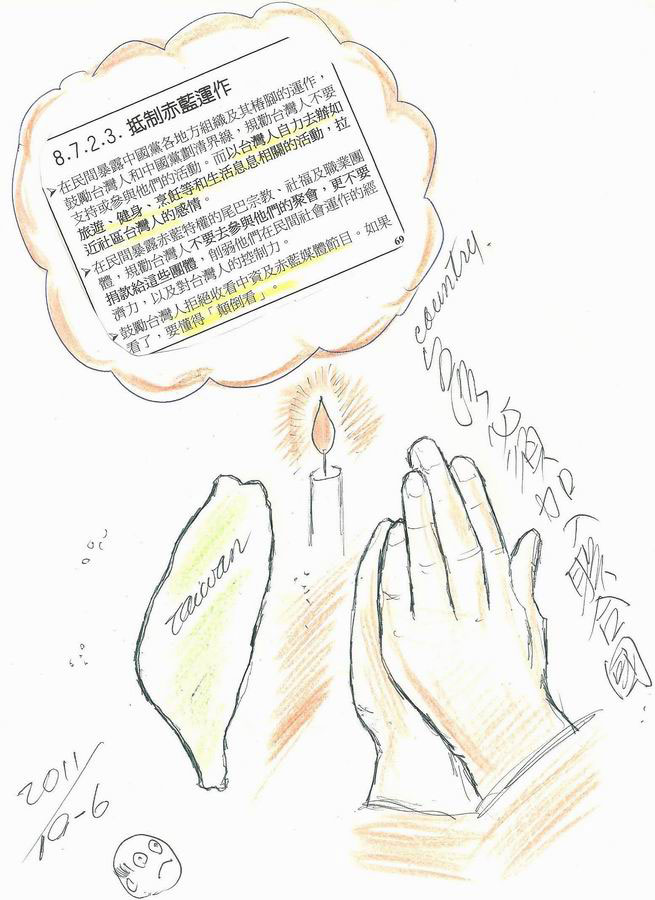 8.7.2.3. 抵制赤藍運作
➢在民間暴露中國黨各地方組織及其樁腳的運作，
鼓勵台灣人和中國黨劃清界線，規勸台灣人不要
支持或參與他們的活動。而以台灣人自力去辦如
旅遊、健身、烹飪等和生活息息相關的活動，拉
近社區台灣人的感情。
➢在民間暴露赤藍特權的尾巴宗教、社福及職業團
體，規勸台灣人不要去參與他們的聚會，更不要
捐款給這些團體，削弱他們在民間社會運作的經
濟力，以及對台灣人的控制力。
➢鼓勵台灣人拒絕收看中資及赤藍媒體節目。如果
看了，要懂得「顛倒看」。
69
country
必須加入聯合國
Taiwan
2011/10-6